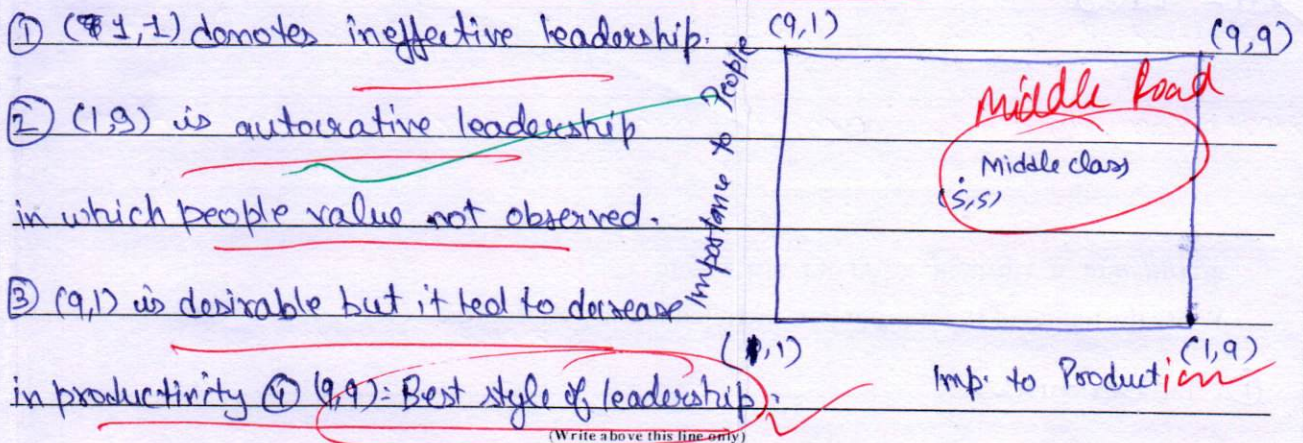 ① (1,1) donotes ineffective leadership.
② (1,9) is autocrative leadership
in which people value not observed.
③ (9,1) is desirable but it led to decrease
in productivity ④ (9,9): Best style of leadership.
(Write above this line only)
(9,1)
(9,9)
Importance to People
Middle Road
Middle class
(5,5)
(1,1)
(1,9)
Imp. to Production